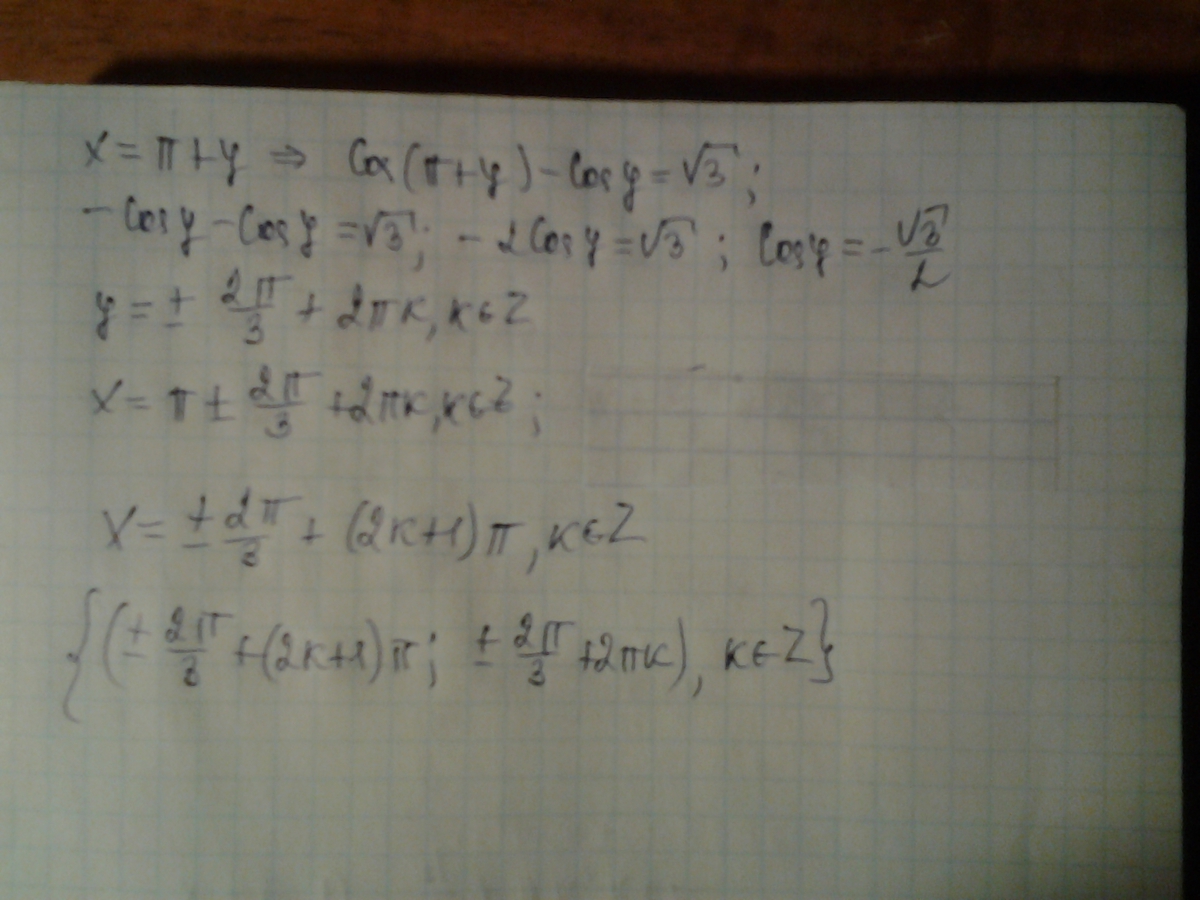 x = π + y ⇒ Cos(π + y) - Cos y = √3 ;
- Cos y - Cos y = √3 ; - 2Cos y = √3 ; Cos y = - √3/2
y = ± 2π/3 + 2πk, k∈Z
x = π ± 2π/3 + 2πk, k∈Z ;
x = ± 2π/3 + (2k+1)π, k∈Z
{(± 2π/3 + (2k+1)π ; ± 2π/3 + 2πk), k∈Z}